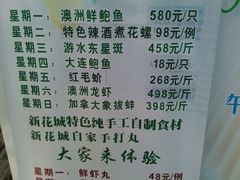 星期一：澳洲鲜鲍鱼 580元/只
星期二：特色辣酒煮花螺 98元/例
星期三：游水东星斑 458元/斤
星期四：大连鲍鱼 18元/只
星期五：红毛蚧 268元/斤
星期六：澳洲龙虾 498元/斤
星期日：加拿大象拔蚌 398元/斤
新花城特色纯手工自制食材
新花城自家手打丸
大家来体验
星期一：鲜虾丸 48元/例
午